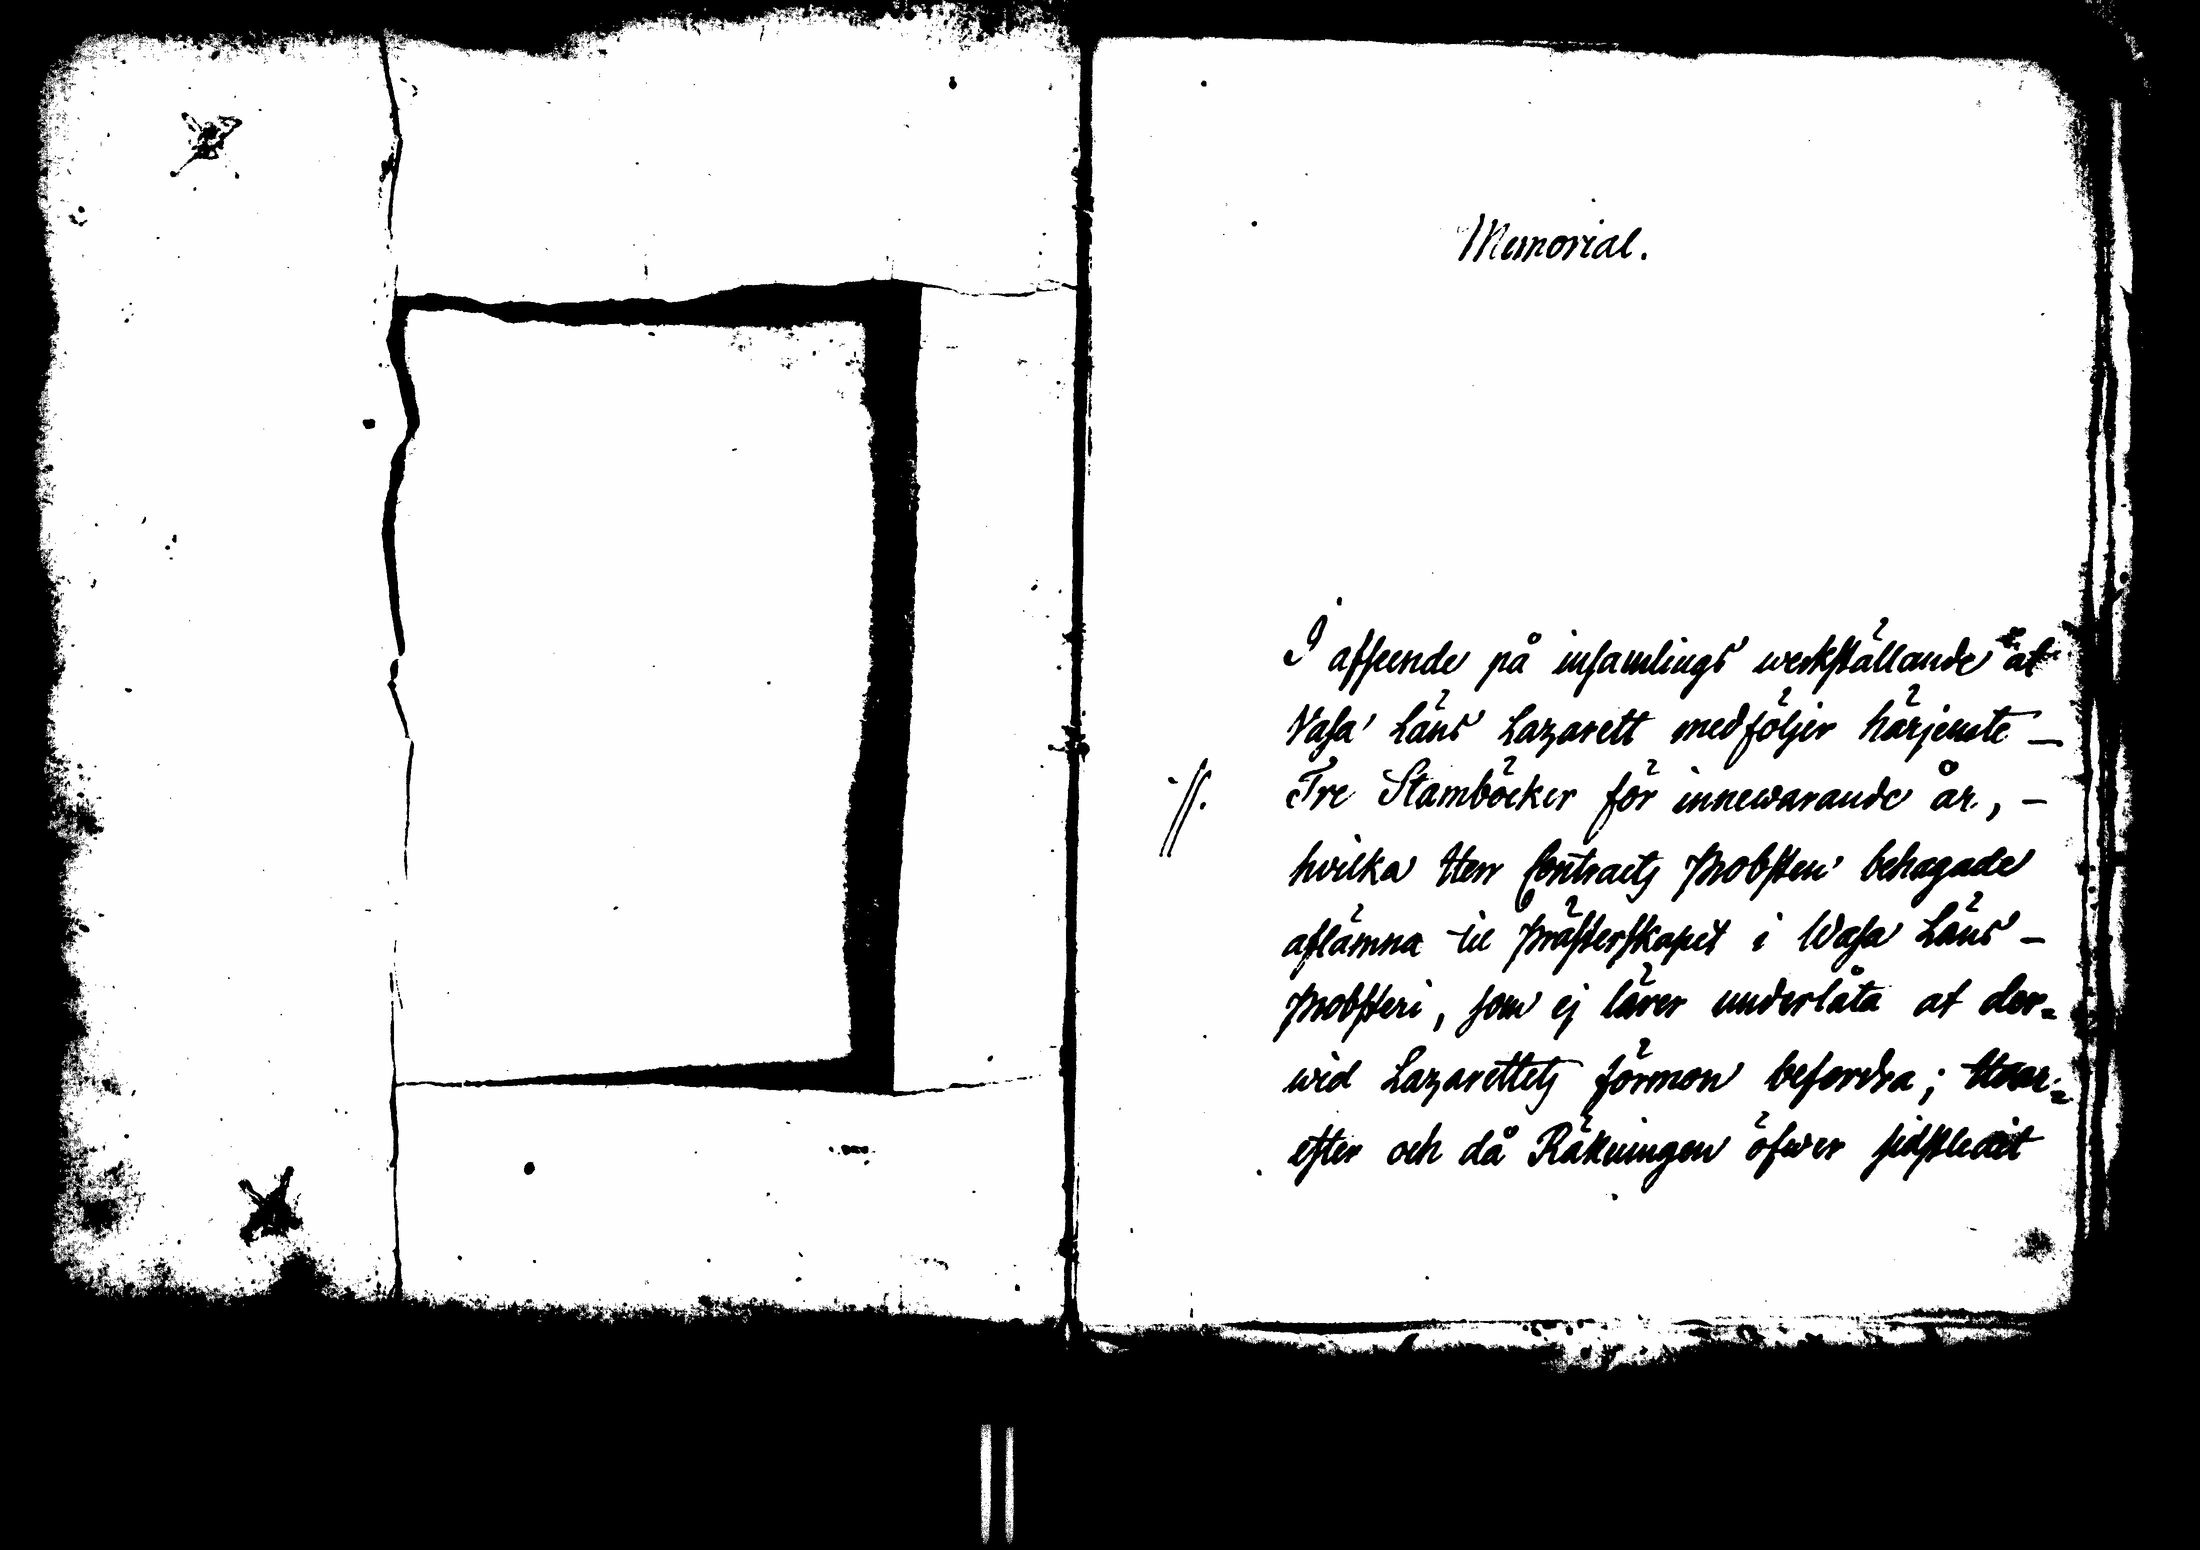 Memorial.
I afseende på insamlings werkställande åt
Vasa Läns Lazarett medföljer härjemte —
·//. Tre Stamböcker för innewarande år, —
hvilka Herr Contracts Probsten behagade
aflämna til Prästerskapet i Wasa Läns —
Probsteri, som ej lärer underlåta at der=
wid Lazarettets förmon befordra; Hvar=
efter och då Räkningen öfwer sidstledit